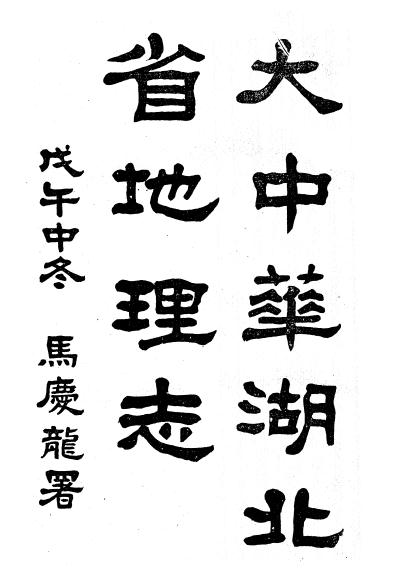 大中華湖北
省地理志
戊午中冬 馬慶龍署